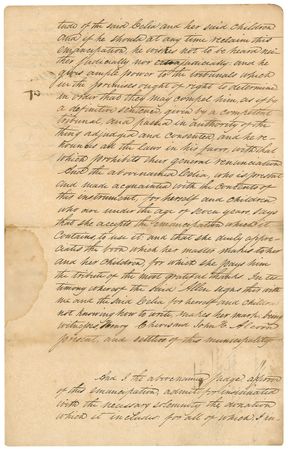 tude of the said Celia and her said children
and if he should at any time reclaim this
emancipation, he wishes not to be heard nei
ther judicially nor extrajudicially and he
gives ample power to the tribunals which
in the premises ought of right to determine
in order that they may compel him, as if by
a definitive sentence given by a competent
tribunal and passed in authority of the
thing adjudged and consented and he re-
nounces all the laws in his favor, with that
which prohibits this general renunciation.
And the abovenamed Celia, who is present
and made acquainted with the contents of
this instrument, for herself and children
who are under the age of seven years, says
that she accepts the emancipation which it
contains, to use it, and that she duly appre-
ciates the boon which her master grants to her
and her children, for which she pays him
the tribute of the most grateful thanks. In tes
timony whereof the said Allen signs this with
me and the said Celia for herself and children
not knowing how to write, makes her mark, being
witnesses Henry Cheves and John E.
present, and settlers of this municipality

And I the abovenamed Judge approve
of this emancipation, admit
with the necessary solemnity the donation
which it includes for all of which I in-